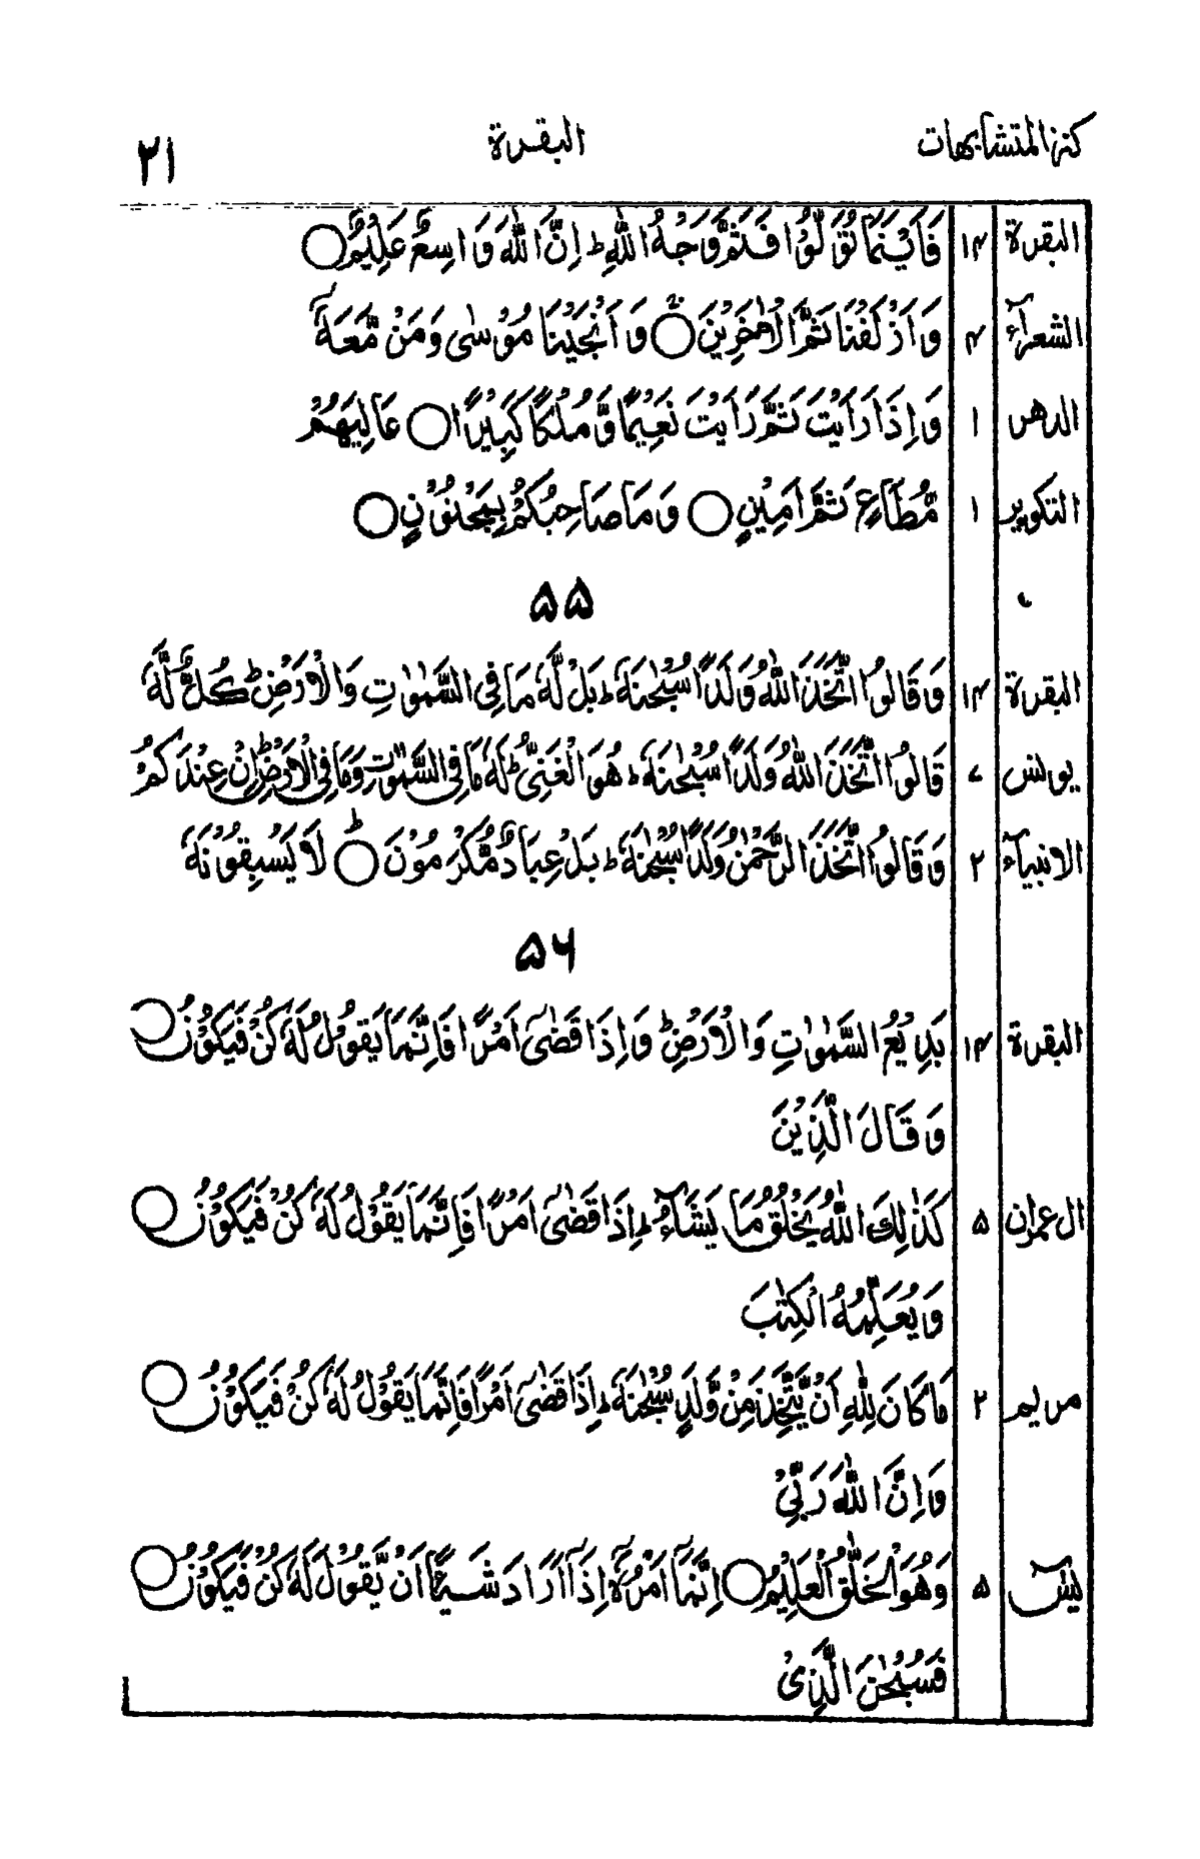 كنز المتشابهات البقرة ٢١
البقرة ١٤ فَاَيْنَمَا تُوَلُّوْا فَثَمَّ وَجْهُ اللّٰهِ ؕ اِنَّ اللّٰهَ وَاسِعٌ عَلِيْمٌ ○
الشعرآء ٤ وَاَزْلَفْنَا ثَمَّ الْاٰخَرِيْنَ ○ وَاَنْجَيْنَا مُوْسٰى وَمَنْ مَّعَهٗۤ
الدهر ١ وَاِذَا رَاَيْتَ ثَمَّ رَاَيْتَ نَعِيْمًا وَّمُلْكًا كَبِيْرًا ○ عَالِيَهُمْ
التكوير ١ مُّطَاعٍ ثَمَّ اَمِيْنٍ ○ وَمَا صَاحِبُكُمْ بِمَجْنُوْنٍ ○
۵۵
البقرة ١٤ وَقَالُوا اتَّخَذَ اللّٰهُ وَلَدًا سُبْحٰنَهٗ ؕ بَلْ لَّهٗ مَا فِى السَّمٰوٰتِ وَالْاَرْضِ ؕ كُلٌّ لَّهٗ
يونس ٧ قَالُوا اتَّخَذَ اللّٰهُ وَلَدًا سُبْحٰنَهٗ ؕ هُوَ الْغَنِىُّ ؕ لَهٗ مَا فِى السَّمٰوٰتِ وَمَا فِى الْاَرْضِ ؕ اِنْ عِنْدَكُمْ
الانبيآء ٢ وَقَالُوا اتَّخَذَ الرَّحْمٰنُ وَلَدًا سُبْحٰنَهٗ ؕ بَلْ عِبَادٌ مُّكْرَمُوْنَ ○ لَا يَسْبِقُوْنَهٗ
۵۶
البقرة ١٤ بَدِيْعُ السَّمٰوٰتِ وَالْاَرْضِ ؕ وَاِذَا قَضٰۤى اَمْرًا فَاِنَّمَا يَقُوْلُ لَهٗ كُنْ فَيَكُوْنُ ○
وَقَالَ الَّذِيْنَ
ال عمران ۵ كَذٰلِكِ اللّٰهُ يَخْلُقُ مَا يَشَآءُ ؕ اِذَا قَضٰۤى اَمْرًا فَاِنَّمَا يَقُوْلُ لَهٗ كُنْ فَيَكُوْنُ ○
وَيُعَلِّمُهُ الْكِتٰبَ
مريم ٢ مَا كَانَ لِلّٰهِ اَنْ يَّتَّخِذَ مِنْ وَّلَدٍ سُبْحٰنَهٗ ؕ اِذَا قَضٰۤى اَمْرًا فَاِنَّمَا يَقُوْلُ لَهٗ كُنْ فَيَكُوْنُ ○
وَاِنَّ اللّٰهَ رَبِّىْ
يٰسٓ ۵ وَهُوَ الْخَلّٰقُ الْعَلِيْمُ ○ اِنَّمَاۤ اَمْرُهٗۤ اِذَاۤ اَرَادَ شَيْـًٔا اَنْ يَّقُوْلَ لَهٗ كُنْ فَيَكُوْنُ ○
فَسُبْحٰنَ الَّذِىْ